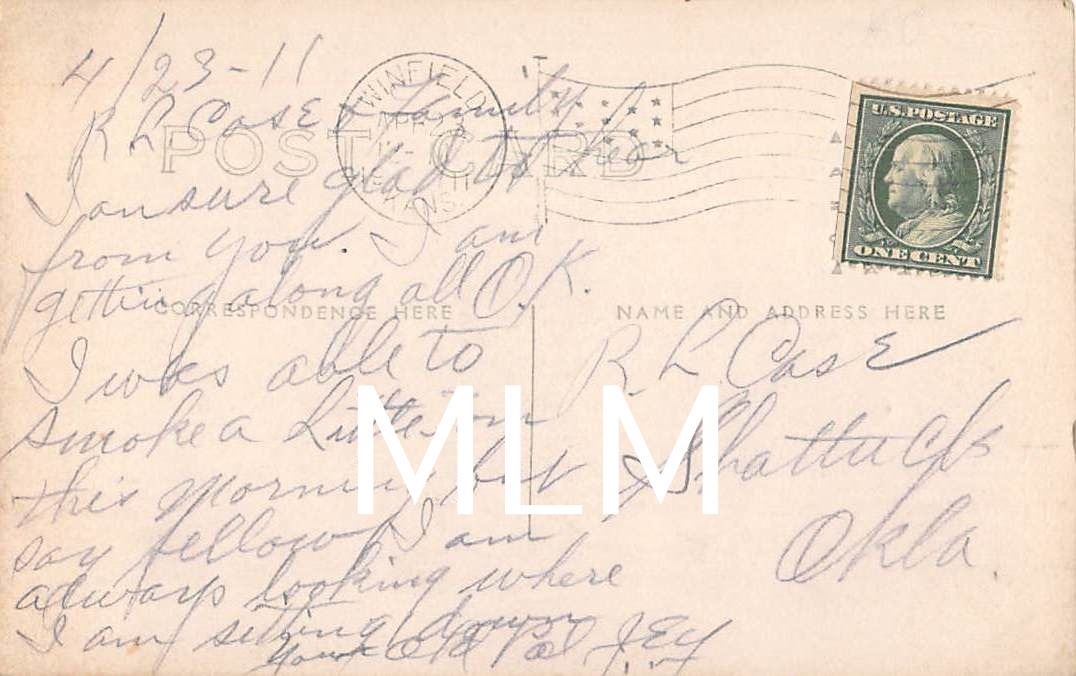 4/23-11
R L Case & Family
POST CARD
WINFIELD
KANS.
U.S. POSTAGE
ONE CENT
I am sure glad to hear
from you. I am
getting along all O.K.
CORRESPONDENCE HERE
I was able to
smoke a little on
this morning but
say fellow I am
always looking where
I am setting down
Your Old Pal
NAME AND ADDRESS HERE
R L Case
Shattuck
Okla.
MLM